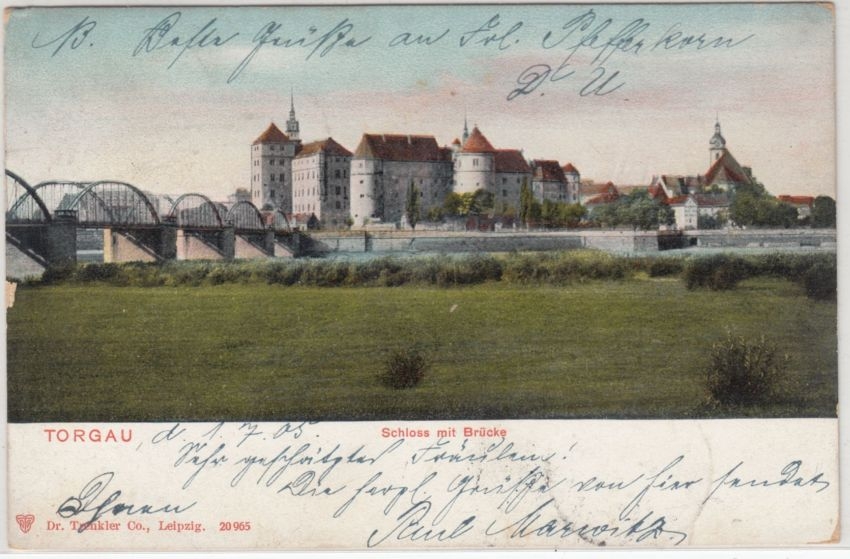 N. Beste Grüße an Frl. Pfefferkorn
D. U
TORGAU, d. 1.7.05.
Schloss mit Brücke
Sehr geschätztes Fräulein!
Ihnen Die herzl. Grüße von hier sendet
Paul Marwitz
Dr. Trenkler Co., Leipzig. 20965